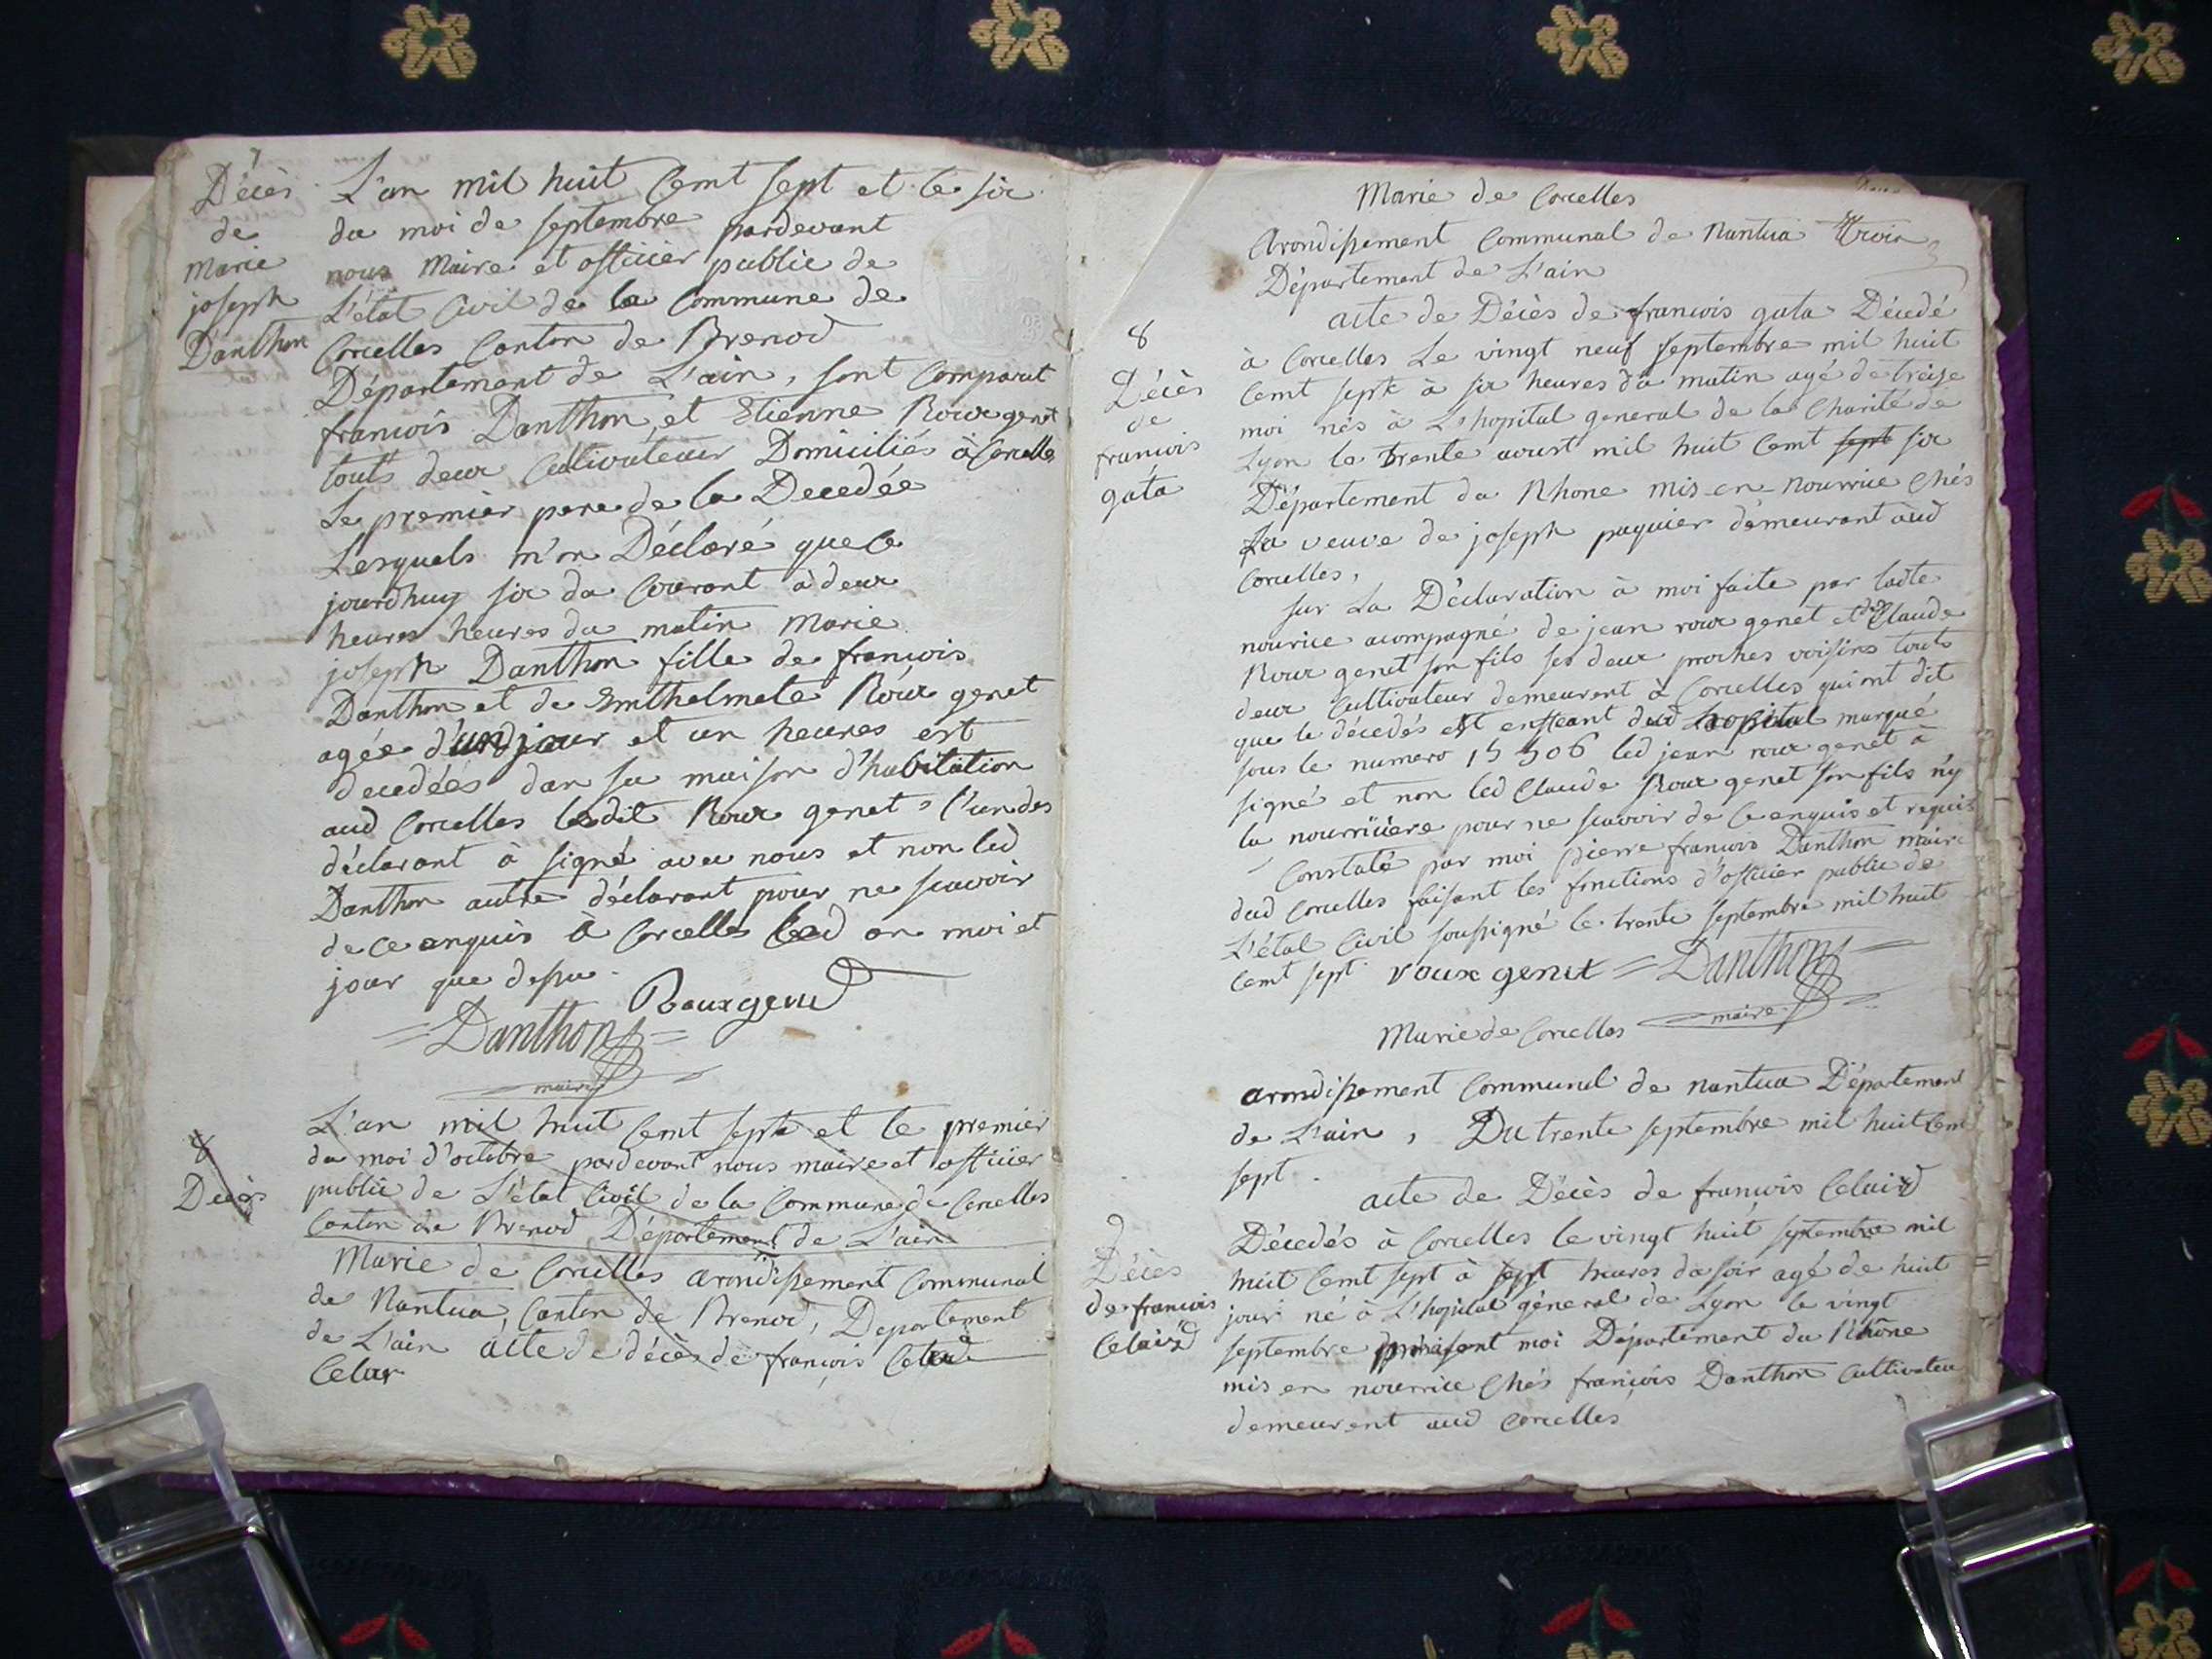 7
Décès
de
marie
joseph
Danthon
L'an mil huit Cemt sept et le six
du moi de septembre pardevant
nous Maire et officier public de
L'état Civil de la Commune de
Corcelles Canton de Brenod
Département de L'ain, sont Comparut
francois Danthon, et Etienne Roux genet
touts deux Cultivateur Domiciliés à Corcelles
Le premier pere de la Decedée
Lesquels m'on Déclaré que le
jourdhuy six du Courant à deux
heures heures du matin Marie
joseph Danthon fille de francois
Danthon et de Roux genet
agée d'un jour et un heures est
decedéés dan sa maison d'habitation
aud Corcelles ledit Roux genet l'un des
déclarant à signé avec nous et non led
Danthon autre déclarant pour ne scavoir
de ce enquis à Corcelles led an moi et
jour que desu
Rouxgenet
Danthon
maire
8
Décès
L'an mil huit Cemt sept et le premier
du moi d'octobre pardevant nous maire et officier
public de L'état Civil de la Commune de Corcelles
Canton de Brenod Département de L'ain
Marie de Corcelles arondissement Communal
de Nantua, Canton de Brenod, Departement
de L'ain acte de décès de françois
Celar
Marie de Corcelles
Arondissement Communal de Nantua
Département de L'ain
8
Décès
de
francois
gata
acte de Décès de francois gata Décedé
à Corcelles Le vingt neuf septembre mil huit
Cemt sept à six heures du matin agé de treize
moi nés à L'hopital general de la Charité de
Lyon le trente aoust mil huit Cemt sept six
Département du Rhone mis en nourrice Chés
La veuve de joseph paquier demeurant aud
Corcelles,
sur La Déclaration à moi faite par ladte
nourice acompagné de jean roux genet et de Claude
Roux genet son fils ses deux proches voisins touts
deux Cultivateur demeurent à Corcelles qui ont dit
que le décedés est enffeant dud hopital marqué
sous le numero 15 506 led jean roux genet à
signé et non led Claude Roux genet son fils n'y
la nourriciere pour ne scavoir de ce enquis et requis
Constaté par moi pierre francois Danthon maire
dud Corcelles faisant les fonctions d'officier public de
L'état Civil soussigné le trente septembre mil huit
Cemt sept roux genet Danthon
maire
Marie de Corcelles
arondissement Communal de nantua Département
de L'ain, Du trente septembre mil huit Cemt
sept.
9
Décès
de francois
Celaird
acte de Décès de francois Celaird
Décedés à Corcelles le vingt huit septembre mil
huit Cemt sept à sept heures du soir agé de huit
jour né à L'hopital géneral de Lyon le vingt
septembre présent moi Département du Rhône
mis en nourrice Chés françois Danthon Cultivateur
demeurent aud Corcelles